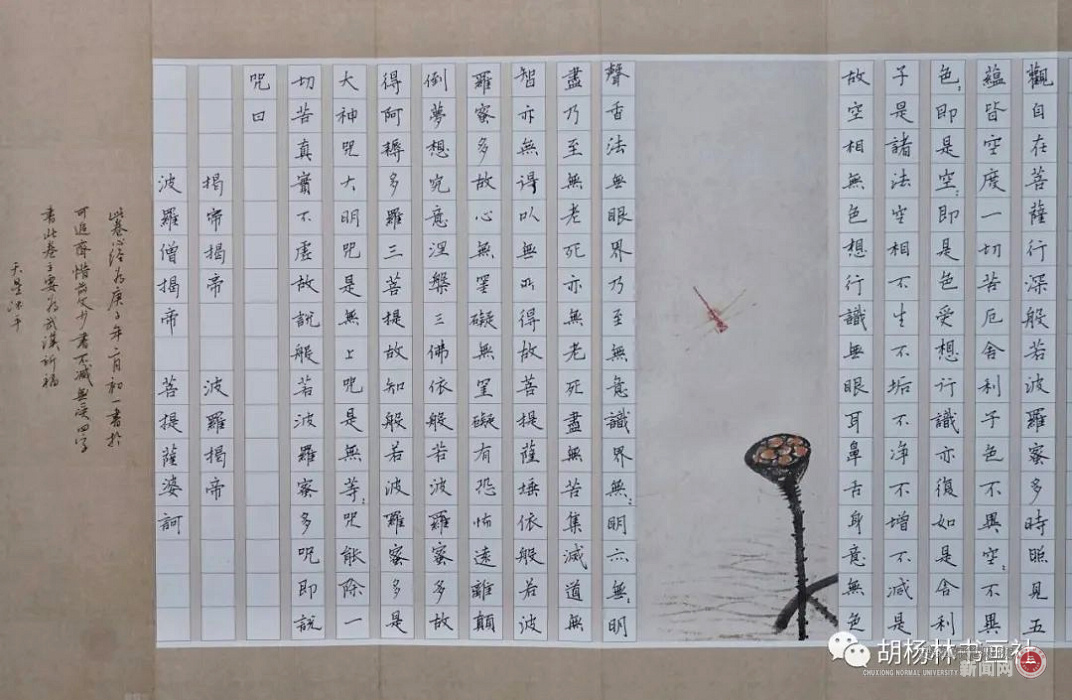 觀自在菩薩行深般若波羅蜜多時照見五
蘊皆空度一切苦厄舍利子色不異空:不異
色:即是空:即是色受想行識亦復如是舍利
子是諸法空相不生不垢不净不增不減是
故空相無色想行識無眼耳鼻舌身意無色
聲香法無眼界乃至無意識界無:明亦無:明
盡乃至無老死亦無老死盡無苦集滅道無
智亦無得以無所得故菩提薩埵依般若波
羅蜜多故心無罣礙無罣礙有恐怖遠離顛
倒夢想究意涅槃三佛依般若波羅蜜多故
得阿耨多羅三菩提故知般若波羅蜜多是
大神咒大明咒是無上咒是無等:咒能除一
切苦真實不虛故說般若波羅蜜多咒即說
咒曰
揭帝揭帝 波羅揭帝
波羅僧揭帝 菩提薩婆訶
此卷心經為庚子年二月初一書於
可追齋惜首次少書不減無受四字
書此卷主要為武漢祈福
天星沐手
胡杨林书画社
CHUXIONG NORMAL UNIVERSITY 新闻网